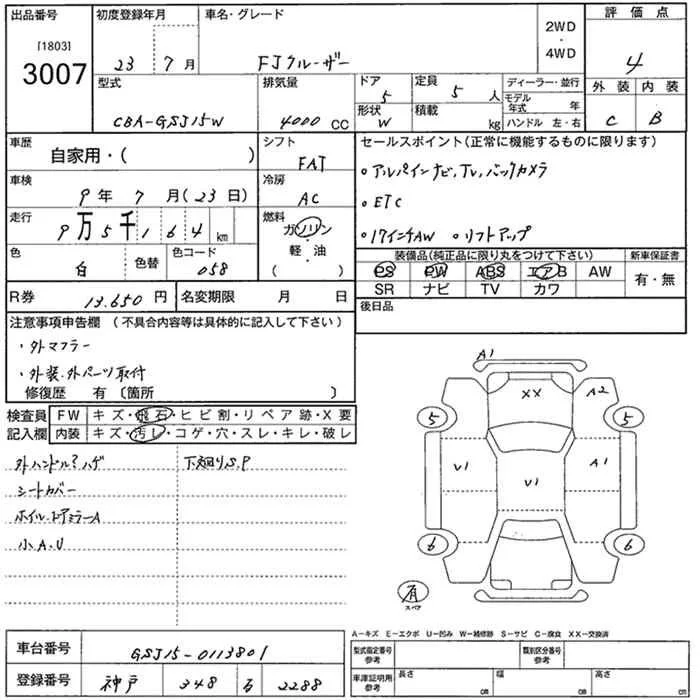 出品番号 初度登録年月 車名・グレード 評価点
[1803]
3007
23 7月 FJクルーザー
2WD
・
4WD
4
型式 排気量 ドア 5 定員 5人 ディーラー・並行 外装 内装
CBA-GSJ15W 4000 CC 形状 W 積載 kg モデル年式 年 C B
ハンドル 左・右
車歴 自家用・( ) シフト FAT
セールスポイント(正常に機能するものに限ります)
車検 9年 7月(23日) 冷房 AC
・アルパインナビ,TV,バックカメラ
・ETC
・17インチAW ・リフトアップ
走行 9万5千164km 燃料 ガソリン
軽・油
( )
色 白 色替 色コード 058
装備品(純正品に限り丸をつけて下さい) 新車保証書
PS PW ABS エアB AW 有・無
SR ナビ TV カワ
R券 13.650円 名変期限 月 日
後日品
注意事項申告欄 (不具合内容等は具体的に記入して下さい)
・外マフラー
・外装.外パーツ取付
修復歴 有(箇所 )
検査員 FW キズ・飛石・ヒビ割・リペア跡・X要
記入欄 内装 キズ・汚レ・コゲ・穴・スレ・キレ・破レ
外ハンドルミハゲ 下廻りS,P
シートカバー
ホイル.ドアミラーA
小A.U
A1
XX A2
5 5
U1 U1 A1
6 6
有
スペア
A−キズ E−エクボ U−凹み W−補修跡 S−サビ C−腐食 XX−交換済
車台番号 GSJ15-0113801
型式指定番号 参考 類別区分番号 参考
登録番号 神戸 348 る 2288
車庫証明用 参考 長さ cm 幅 cm 高さ cm